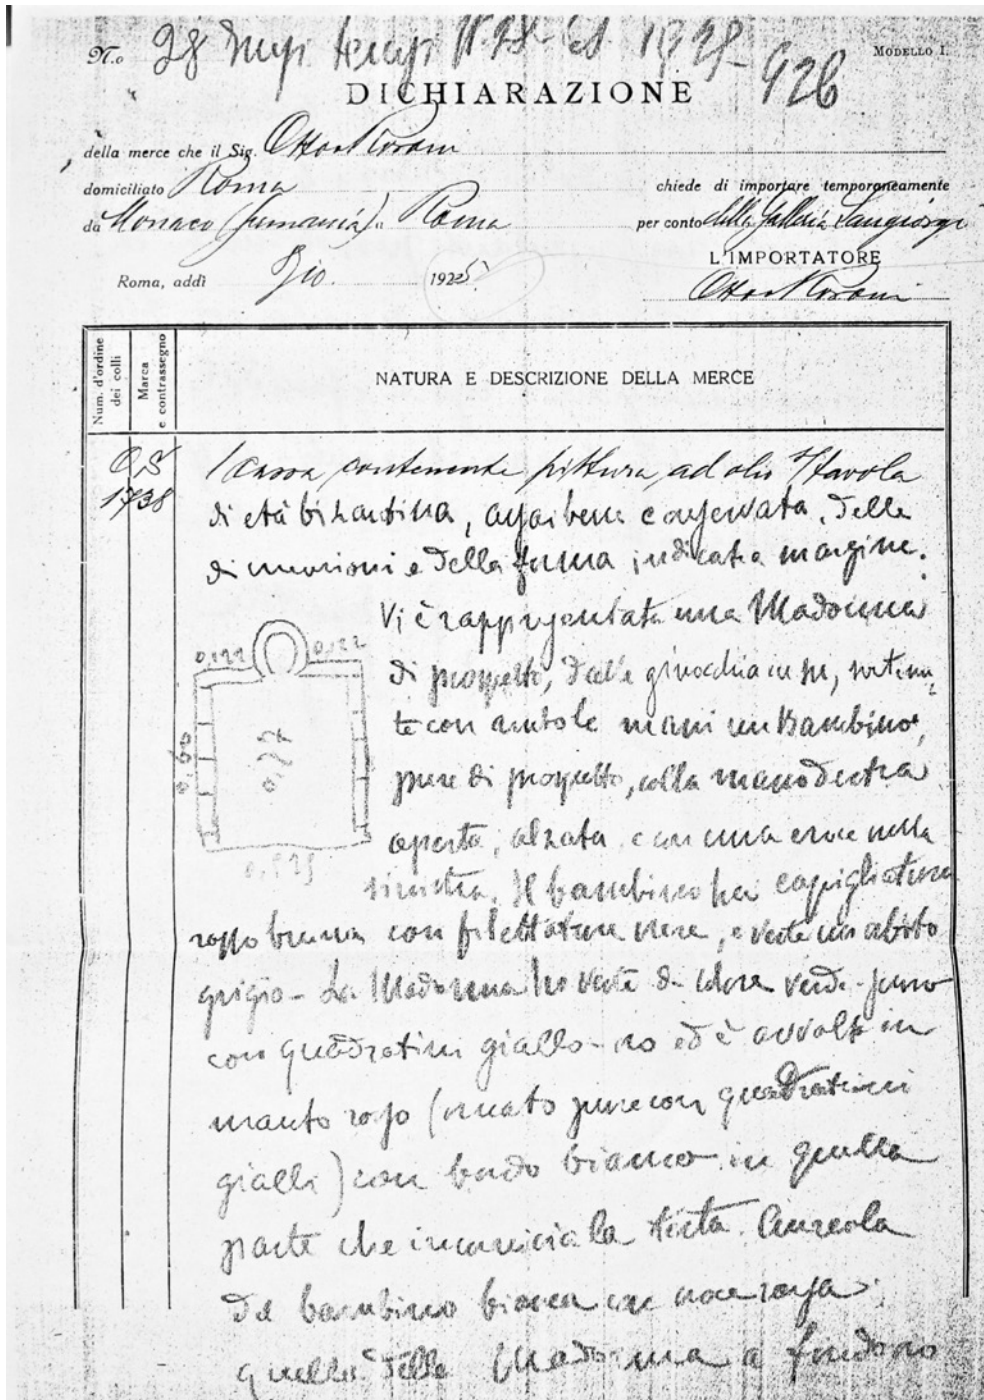 N.o 28 Imp. temp. N. 28
926
MODELLO I.
DICHIARAZIONE
della merce che il Sig.
domiciliato Roma chiede di importare temporaneamente
da Monaco (Germania) a Roma per conto della Galleria Sangiorgi
L'IMPORTATORE
Roma, addì 1925
Num. d'ordine dei colli
Marca e contrassegno
NATURA E DESCRIZIONE DELLA MERCE
1738
1 Cassa contenente pittura ad olio s/tavola
di età bizantina, assai bene conservata, delle
dimensioni e della forma indicata a margine.
Vi è rappresentata una Madonna
di prospetto, dalle ginocchia in su, sostenen-
te con ambo le mani un Bambino,
pure di prospetto, colla mano destra
aperta, alzata e con una croce nella
sinistra. Il bambino ha capigliatura
rosso bruna con filettature nere, e veste un abito
grigio - La Madonna ha veste di colore verde-
con quadratini giallo- ed è avvolta in
manto rosso (ornato pure con quadratini
gialli) con bordo bianco in quella
parte che incornicia la testa. Aureola
del bambino bianca con croce rossa
quella della Madonna a fondo
0,122 0,122
0,60
0,77